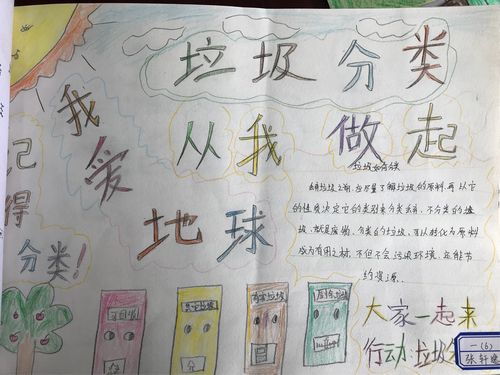 垃圾分类
从我做起
我爱
地球
记得
分类!
垃圾如何分类
的性质决定它的类别来分类丢弃,不分类的垃
圾,就是废物,分类的垃圾,可以转化为原料
成为有用之材,不但不会污染环境,还能节
约资源.
可回收
其它垃圾
有害垃圾
厨余垃圾
大家一起来
行动垃圾分
一(6)
张轩